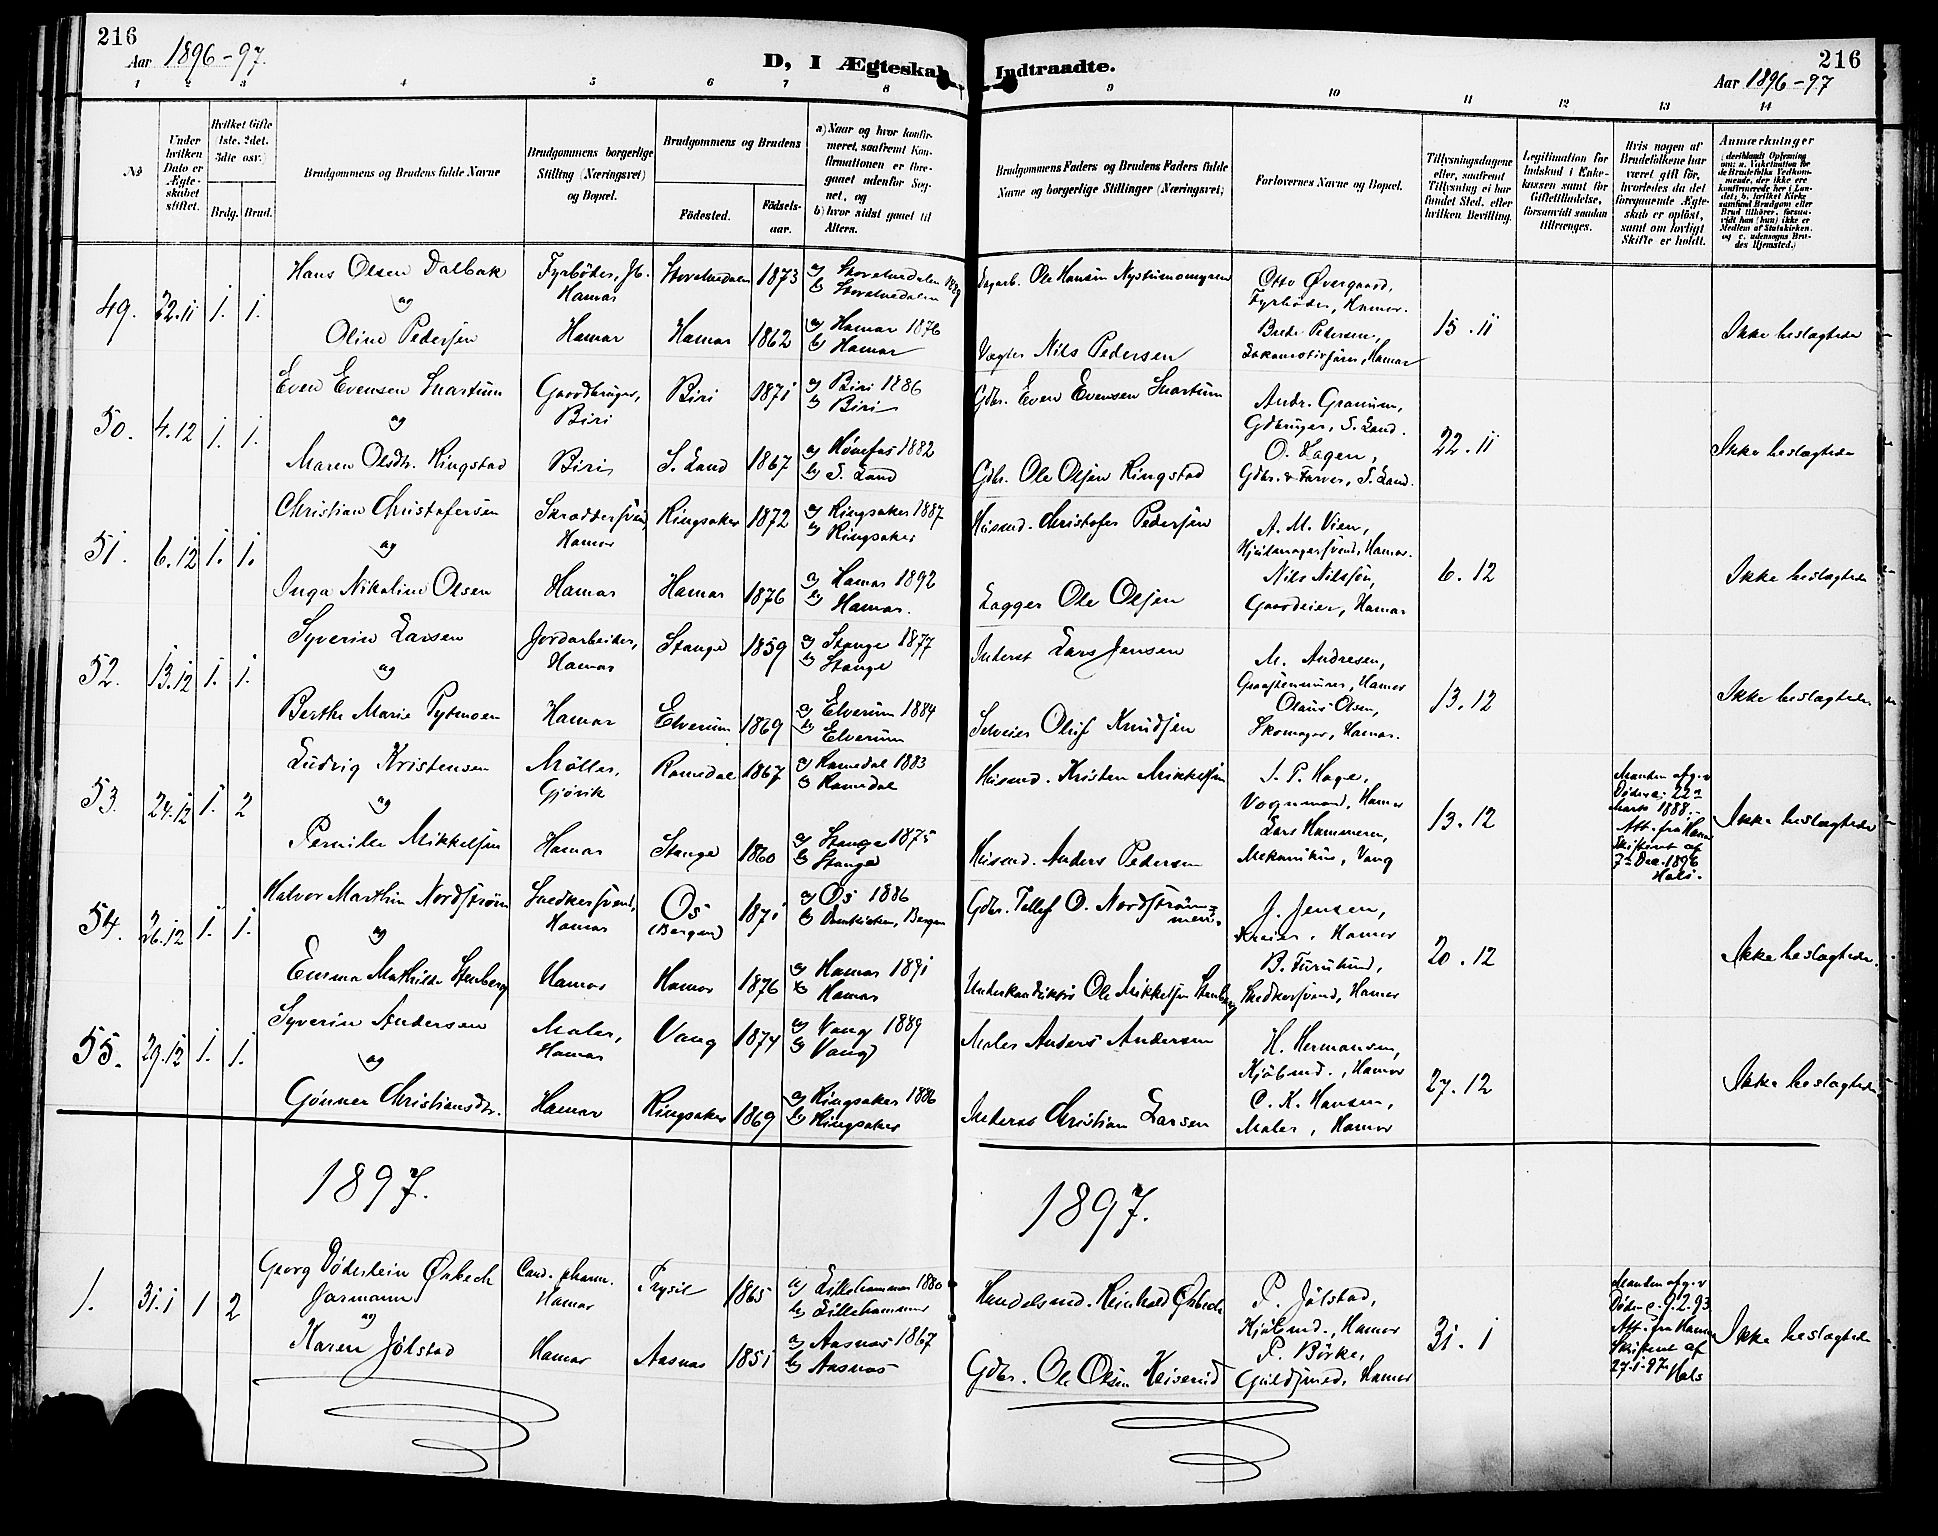 216
Aar 1896-97.
D, I Ægteskab Indtraadte.
216
Aar 1896-97
1 2 3 4 5 6 7 8 9 10 11 12 13 14
No
Under hvilken Dato er Ægteskabet stiftet.
Hvilket Gifte 1ste, 2det, 3die osv.)
Brdg. Brud.
Brudgommens og Brudens fulde Navne
Brudgommens borgerlige Stilling (Næringsvei) og Bopæl.
Brudgommens og Brudens
Födested.
Födsels-aar.
a) Naar og hvor konfirmeret, saafremt Konfirmationen er foregaaet udenfor Sognet, og
b) hvor sidst gaaet til Alters.
Brudgommens Faders og Brudens Faders fulde Navne og borgerlige Stillinger (Næringsvei)
Forlovernes Navne og Bopæl.
Tillysningsdagene eller, saafremt Tillysning ei har fundet Sted, efter hvilken Bevilling.
Legitimation for Indskud i Enkekassen samt for Giftetilladelse, forsaavidt saadan tiltrænges.
Hvis nogen af Brudefolkene har været gift før, hvorledes da det foregaaende Ægteskab er oplöst, samt om lovligt Skifte er holdt.
Anmærkninger
49. 22.11 1. 1.
Hans Olsen Dalbak
og
Oline Pedersen
Fyrbøder, Jb.
Hamar
Hamar
Storelvedalen 1873
Hamar 1862
a) Storelvedalen 1889
b) Storelvedalen
a) Hamar 1876
b) Hamar
Dagarb. Ole Hansen Nystumomyren
Vægter Nils Pedersen
Otto Øvergaard,
Fyrbøder, Hamar.
Brede Pedersen,
Lokomotivførn, Hamar
15.11
Ikke beslægtede
50. 4.12 1. 1.
Even Evensen Snartum
og
Maren Olsdtr. Ringstad
Gaardbruger,
Biri
Biri
Biri 1871
S. Land 1867
a) Biri 1886
b) Biri
a) Hønefos 1882
b) S. Land
Gdbr. Even Evensen Snartum
Gdbr. Ole Olsen Ringstad
Andr. Granum,
Gdbruger, S. Land.
O. Hagen,
Gdbr. & Farver, S. Land.
22.11
Ikke beslægtede
51. 6.12 1. 1.
Christian Christofersen
og
Inga Nikoline Olsen
Skræddersvend
Hamar
Hamar
Ringsaker 1872
Hamar 1876
a) Ringsaker 1887
b) Ringsaker
a) Hamar 1892
b) Hamar.
Husmd. Christofer Pedersen
Lagger Ole Olsen
A. M. Vien,
Hjulmagersvend, Hamar.
Nils Nilssøn,
Gaardeier, Hamar
6.12
Ikke beslægtede
52. 13.12 1. 1.
Syverin Larsen
og
Berthe Marie Pytmoen
Jordarbeider,
Hamar
Hamar
Stange 1859
Elverum 1869
a) Stange 1877
b) Stange
a) Elverum 1884
b) Elverum
Inderst Lars Jensen
Selveier Oluf Knudsen
M. Andresen,
Graastensmurer, Hamar
Olaus Olsen,
Skomager, Hamar.
13.12
Ikke beslægtede
53. 24.12 1. 2
Ludvig Kristensen
og
Pernille Mikkelsen
Møller,
Gjøvik
Hamar
Romedal 1867
Stange 1860
a) Romedal 1883
b) Romedal
a) Stange 1875
b) Stange
Husmd. Kristen Mikkelsen
Husmd. Anders Pedersen
S. P. Hage,
Vognmand, Hamar
Lars Hammeren,
Mekanikus, Vang
13.12
Manden afg. v
Døden 22de
Marts 1888.
Att. fra Hamar
Skifteret af
7de Dec. 1896
Hals.
Ikke beslægtede
54. 26.12 1. 1.
Halvor Marthin Nordstrøm
og
Emma Mathilde Stenberg
Snedkersvend,
Hamar
Hamar
Os
(Bergen) 1871
Hamar 1876
a) Os 1886
b) Domkirken, Bergen
a) Hamar 1891
b) Hamar
Gdbr. Tollef O. Nordstrøm=
men.
Underkonduktør Ole Mikkelsen Stenberg
J. Jensen,
Hamar
B. Furulund,
Snedkersvend, Hamar
20.12
Ikke beslægtede.
55. 29.12 1. 1.
Syverin Andersen
og
Gønner Christiansdtr.
Maler,
Hamar
Hamar
Vang 1874
Ringsaker 1869
a) Vang 1889
b) Vang
a) Ringsaker 1886
b) Ringsaker
Maler Anders Andersen
Inderst Christian Larsen
H. Hermansen,
Kjøbmd., Hamar
C. K. Hansen,
Maler, Hamar
27.12
Ikke beslægtede
1897.
1897.
1. 31.1 1 2
Georg Døderlein Ørbech
Jarmann
og
Karen Jølstad
Cand. pharm.
Hamar
Hamar
Trysil 1865
Aasnæs 1851
a) Lillehammer 1880
b) Lillehammer
a) Aasnæs 1867
b) Aasnæs
Handelsmd. Reinhold Ørbech
Gdbr. Ole Olsen Keiserud
P. Jølstad,
Kjøbmd., Hamar
P. Börke,
Guldsmed, Hamar
31.1
Manden afg. v
Døden 9.2.93
Att. fra Hamar
Skifteret af
27.1.97. Hals
Ikke beslægtede